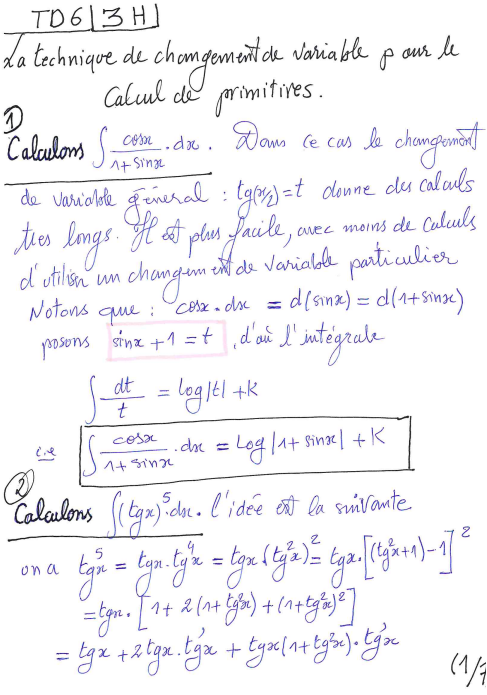 TD6 | 3H |
La technique de changement de variable pour le
Calcul de primitives.
1) Calculons ∫ cosx/(1+sinx) · dx. Dans ce cas le changement
de variable général : tg(x/2) = t donne des calculs
très longs. Il est plus facile, avec moins de calculs
d'utiliser un changement de variable particulier
Notons que : cosx · dx = d(sinx) = d(1+sinx)
posons sinx + 1 = t, d'où l'intégrale
∫ dt/t = log|t| + K
i.e ∫ cosx/(1+sinx) · dx = Log|1+sinx| + K
2) Calculons ∫(tgx)⁵·dx. l'idée est la suivante
on a tg⁵x = tgx · tg⁴x = tgx · (tg²x)² = tgx · [(tg²x+1)-1]²
= tgx · [1 + 2(1+tg²x) + (1+tg²x)²]
= tgx + 2tgx · tg'x + tgx(1+tg²x) · tg'x
(1/7